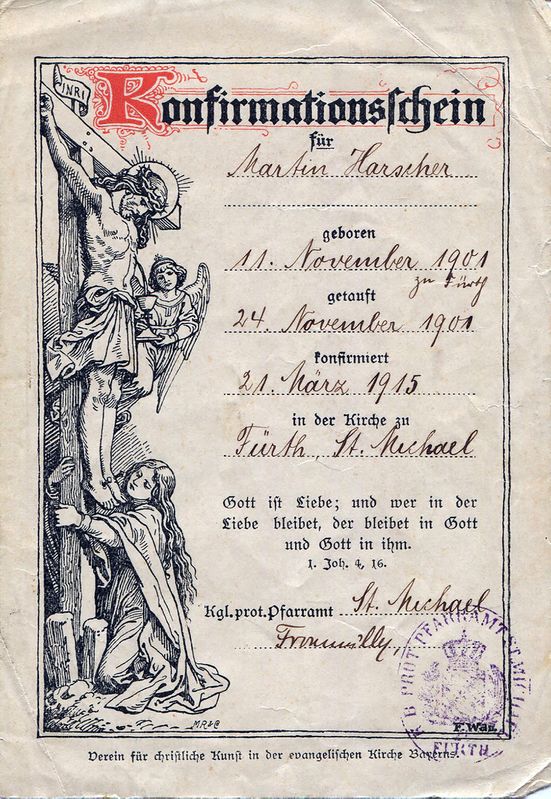 INRI
Konfirmationsschein
für
Martin Harscher
geboren
11. November 1901
zu Fürth
getauft
24 November 1901
konfirmiert
21. März 1915
in der Kirche zu
Fürth, St. Michael
Gott ist Liebe; und wer in der
Liebe bleibet, der bleibet in Gott
und Gott in ihm.
1. Joh. 4, 16.
Kgl. prot. Pfarramt St. Michael
K. B. PROT. PFARRAMT ST. MICHAEL
FÜRTH
Verein für christliche Kunst in der evangelischen Kirche Bayerns.